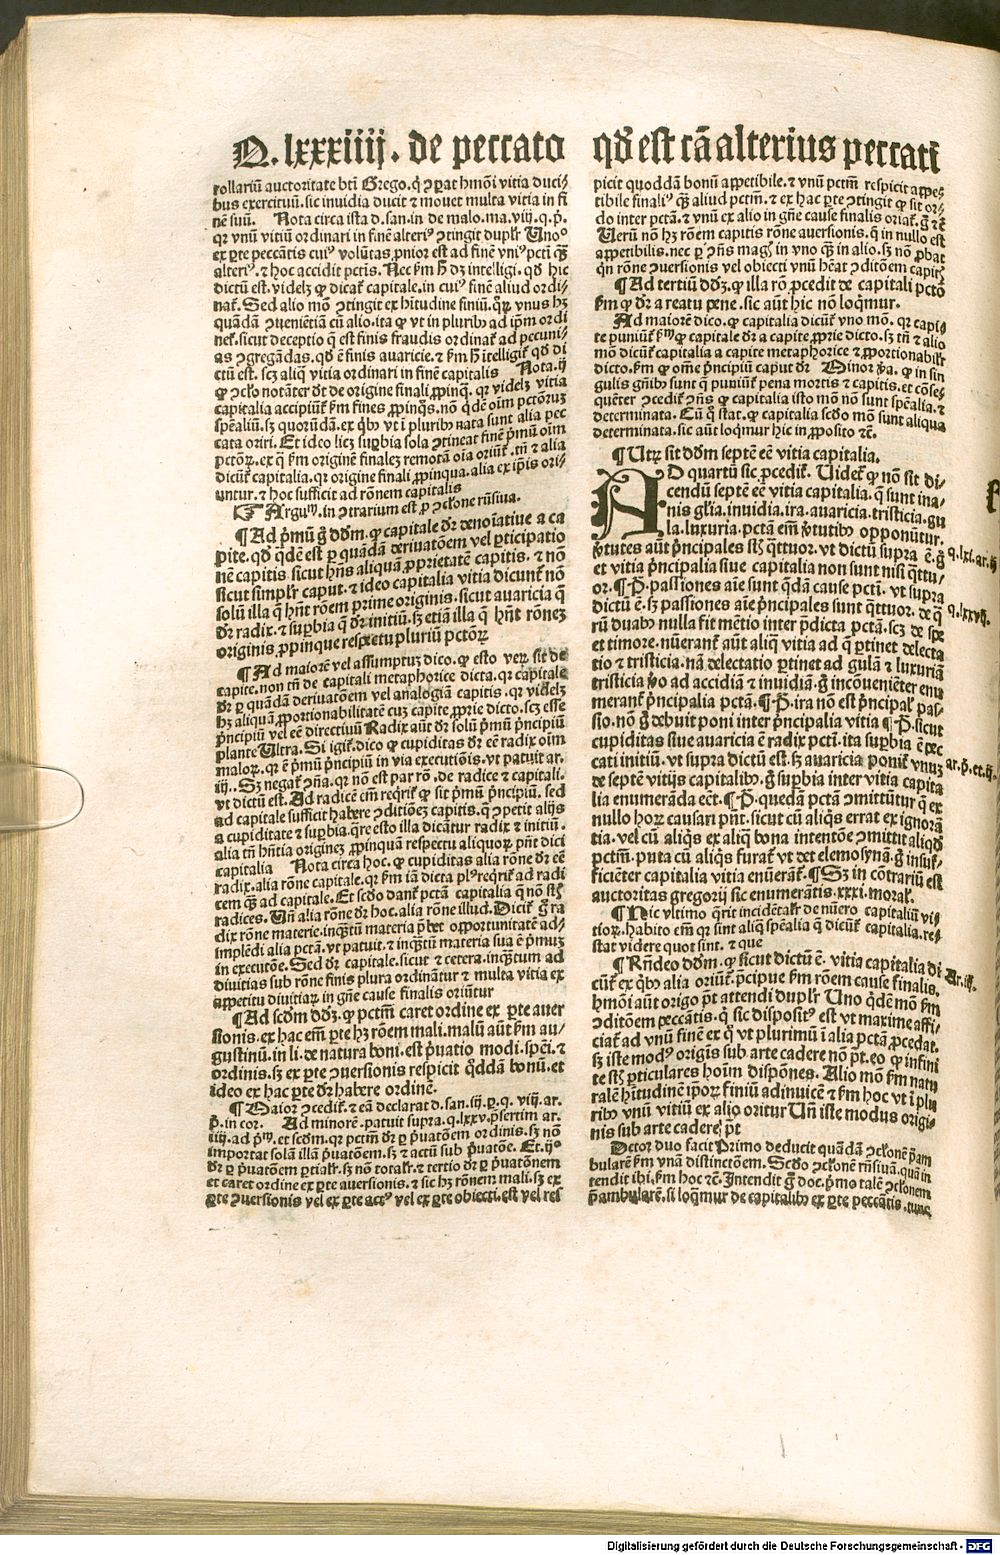 Q. lxxxiiij. de peccato qđ est cā alterius peccati
rollariū auctoritate bti Grego. q̇ ꝯꝑat hmōi vitia duci⸗
bus exercituū. sic inuidia ducit ⁊ mouet multa vitia in fi
nē suū. Nota circa ista d. san. in de malo. ma. viij. q. p̄.
qꝛ vnū vitiū ordinari in finē alteriꝰ ꝯtingit duplr̄ Unoº
ex ꝑte peccātis cuiꝰ volūtas ꝓnior est ad finē vniꝰ pcti q̄ꝫ
alteriꝰ. ⁊ hoc accidit pctis. Nec km̄ h̄ dꝫ intelligi. qđ hic
dictū est. videlꝫ ꝙ dicat᷑ capitale, in cuiꝰ finē aliud ordi⸗
nat᷑. Sed alio mō ꝯtingit ex hītudine finiū. qꝝ vnus hꝫ
quādā ꝯueniētiā cū alio. ita ꝙ vt in pluribꝰ ad ip̄m ordi
net᷑. sicut deceptio q̄ est finis fraudis ordinat᷑ ad pecuni⸗
as ꝯgregādas. qđ ē finis auaricie. ⁊ km̄ h̄ itelligit᷑ qđ di
ctū est. scꝫ aliq̄ vitia ordinari in finē capitalis Nota. ij
ꝙ ꝯclo notāter dr̄t de origine finali ꝓpinq̄. qꝛ videlꝫ vitia
capitalia accipiūt᷑ km̄ fines ꝓpinq̄s. nō q̇dē oīm pctōruꝫ
spēaliū. sꝫ quorūdā. ex qͥbꝰ vt i pluribꝰ nata sunt alia pec
cata oriri. Et ideo licꝫ suꝑbia sola ꝯtineat finē p̄mū oīm
pctōꝝ. ex q̇ km̄ originē finaleꝫ remotā oīa oriūt᷑. tn̄ ⁊ alia
dicūt᷑ capitalia. qꝛ origine finali ꝓpinqua. alia ex ip̄is ori⸗
untur. ⁊ hoc sufficit ad rōnem capitalis
☞ Argūᵐ. in ꝯtrarium est ꝓ ꝯclone rn̄siua.
¶ Ad p̄mū g̊ dd̄m. ꝙ capitale dr̄ denoīatiue a ca
pite. qđ q̇dē est ꝑ quādā deriuatōem vel ꝑticipatio
nē capitis sicut hn̄s aliquā ꝓprietatē capitis. ⁊ nō
sicut simplr̄ caput. ⁊ ideo capitalia vitia dicunt᷑ nō
solū illa q̄ hn̄t rōem prime originis. sicut auaricia q̄
dr̄ radix. ⁊ suꝑbia q̄ dr̄ initiū. sꝫ etiā illa q̄ hn̄t rōneꝫ
originis ꝓpinque respectu pluriū pctōꝝ
¶ Ad maiorē vel assumptuꝫ dico. ꝙ esto veꝝ sit de
capite. non tn̄ de capitali metaphorice dicta. qꝛ capitale
dr̄ ꝑ quādā deriuatōem vel analogiā capitis. qꝛ videlꝫ
hꝫ aliquā ꝓportionabilitatē cuꝫ capite ꝓprie dicto. scꝫ esse
p̄ncipiū vel eē directiuū Radix aūt dr̄ solū p̄mū p̄ncipiū
plante Ultra. Si igit᷑. dico ꝙ cupiditas dr̄ eē radix oīm
maloꝝ. qꝛ ē p̄mū p̄ncipiū in via executiōis. vt patuit ar.
iij.. Sꝫ negat᷑ ꝯn̄a. qꝛ nō est par rō. de radice ⁊ capitali.
vt dictū est. Ad radicē em̄ req̇rit᷑ ꝙ sit p̄mū p̄ncipiū. sed
ad capitale sufficit habere ꝯditōeꝫ capitis. q̄ ꝯpetit alijs
a cupiditate ⁊ suꝑbia. q̄re esto illa dicātur radix ⁊ initiū.
alia tn̄ hn̄tia origineꝫ ꝓpinquā respectu aliquoꝝ pn̄t dici
capitalia Nota circa hoc. ꝙ cupiditas alia rōne dr̄ eē
radix. alia rōne capitale. qꝛ km̄ iā dicta plꝰ req̇rit᷑ ad radi
cem q̄ꝫ ad capitale. Et scd̄o dant᷑ pctā capitalia q̄ nō st̄
radices. Un̄ alia rōne dr̄ hoc. alia rōne illud. Dicit᷑ g̊ ra
dix rōne materie. inq̄stū materia p̄bet opportunitatē ad⸗
implēdi alia pctā. vt patuit. ⁊ inq̄stū materia sua ē p̄muꝫ
in executōe. Sed dr̄ capitale. sicut ⁊ cetera. inq̄stum ad
diuitias sub rōne finis plura ordināt̃ ⁊ multa vitia ex
appetitu diuitiaꝝ in gn̄e cause finalis oriūtur
¶ Ad scd̄m dd̄ꝫ. ꝙ pctm̄ caret ordine ex ꝑte auer
sionis. ex hac em̄ ꝑte hꝫ rōem mali. malū aūt km̄ au⸗
gustinū. in li. de natura boni. est p̄uatio modi. spēi. ⁊
ordinis. sꝫ ex ꝑte ꝯuersionis respicit q̇ddā bonū. et
ideo ex hac ꝑte dr̄ habere ordinē.
¶ Maior ꝯcedit᷑. ⁊ eā declarat d. san. iij. ꝑ. q. viij. ar.
p̄. in cor. Ad minorē. patuit supra. q. lxxv. p̄sertim ar.
iiij. ad p̄ᵐ. et scd̄m. qꝛ pctm̄ dr̄ ꝑ p̄uatōem ordinis. sꝫ nō
importat solā illā p̄uatōem. sꝫ ⁊ actū sub p̄uatōe. Et. ijº
dr̄ ꝑ p̄uatōem ꝑtialē. sꝫ nō totalē. ⁊ tertio dr̄ ꝑ p̄uatōnem
et caret ordine ex ꝑte auersionis. ⁊ sic hꝫ rōnem mali. sꝫ ex
ꝑte ꝯuersionis vel ex ꝑte actꝰ vel ex ꝑte obiecti. est vel res
picit quoddā bonū appetibile. ⁊ vnū pctm̄ respicit appe⸗
tibile finaliꝰ q̄ꝫ aliud pctm̄. ⁊ ex hac ꝑte ꝯtingit ꝙ sit or⸗
do inter pctā. ⁊ vnū ex alio in gn̄e cause finalis oriat᷑. g̊ ⁊c̄
Uerū nō hꝫ rōem capitis rōne auersionis. q̄ in nullo est
appetibilis. nec ꝑ ꝯn̄s magꝭ in vno q̄ꝫ in alio. sꝫ nō ꝓbat
qn̄ rōne ꝯuersionis vel obiecti vnū hēat ꝯditōem capitꝭ
¶ Ad tertiū dd̄ꝫ. ꝙ illa rō ꝓcedit de capitali pctō
km̄ ꝙ dr̄ a reatu pene. sic aūt hic nō loq̇mur.
Ad maiorē dico. ꝙ capitalia dicūt᷑ vno mō. qꝛ capi⸗
te puniūt᷑ kmº ꝙ capitale dr̄ a capite ꝓprie dicto. sꝫ tn̄ ⁊ alio
mō dicūt᷑ capitalia a capite metaphorice ⁊ ꝓportionabilr̄
dicto. km̄ ꝙ om̄e p̄ncipiū caput dr̄ Minor p̄a. ꝙ in sin
gulis gn̄ibꝰ sunt q̄ puniūt᷑ pena mortis ⁊ capitis. et cōse⸗
quēter ꝯcedit᷑ ꝯn̄s ꝙ capitalia isto mō nō sunt spēalia. ⁊
determinata. Cū q̇ stat. ꝙ capitalia scd̄o mō sunt aliqua
determinata. sic aūt loq̇mur hic in ꝓposito ⁊c̄.
¶ Utꝝ sit dd̄m septē eē vitia capitalia.
AD quartū sic ꝓcedit᷑. Uidet᷑ ꝙ nō sit di⸗
cendū septē eē vitia capitalia. q̄ sunt ina⸗
nis gl̄ia. inuidia. ira. auaricia. tristicia. gu
la. luxuria. pctā em̄ v̓tutibꝰ opponūtur.
v̓tutes aūt p̄ncipales st̄ q̄ttuor. vt dictū supra ē. g̊
et vitia p̄ncipalia siue capitalia non sunt nisi q̄ttu⸗
or. ¶ P̄. passiones aīe sunt q̄dā cause pcti. vt supra
dictū ē. sꝫ passiōes aīe p̄ncipales sunt q̄ttuor. de q̇
rū duabꝰ nulla fit mētio inter p̄dicta pctā. scꝫ de spe
et timore. nūerant᷑ aūt aliq̄ vitia ad q̄ ꝑtinet delecta
tio ⁊ tristicia. nā delectatio ꝑtinet ad gulā ⁊ luxuriā
tristicia v̓o ad accidiā ⁊ inuidiā. g̊ incōueniēter enu
merant᷑ p̄ncipalia pctā. ¶ P̄. ira nō est p̄ncipał pas⸗
sio. nō g̊ debuit poni inter p̄ncipalia vitia ¶ P̄. sicut
cupiditas siue auaricia ē radix pcti. ita suꝑbia ē pec
cati initiū. vt supra dictū est. sꝫ auaricia ponit᷑ vnuꝫ
de septē vitijs capitalibꝰ. g̊ suꝑbia inter vitia capita
lia enumerāda eēt. ¶ P̄. quedā pctā ꝯmittūtur q̄ ex
nullo hoꝝ causari pn̄t. sicut cū aliq̇s errat ex ignorā
tia. vel cū aliq̇s ex aliq̄ bona intentōe ꝯmittit aliqđ
pctm̄. puta cū aliq̇s furat᷑ vt det elemosynā. g̊ insuf⸗
ficiēter capitalia vitia enūerāt᷑. ¶ Sꝫ in cōtrariū est
auctoritas gregorij sic enumerātis. xxxi. moral̓.
¶ Hic vltimo q̄rit incidētalr̄ de nūero capitaliū vi⸗
tioꝝ. habito em̄ qꝛ sint aliq̄ spēalia q̄ dicūt᷑ capitalia. re⸗
stat videre quot sint. ⁊ que
¶ Rn̄deo dd̄m. ꝙ sicut dictū ē. vitia capitalia di
cūt᷑ ex qͥbꝰ alia oriūt᷑. p̄cipue km̄ rōem cause finalis.
hmōi aūt origo pt̄ attendi duplr̄ Uno q̇dē mō km̄
ꝯditōem peccātis. q̇ sic dispositꝰ est vt maxime affi⸗
ciat᷑ ad vnū finē ex q̇ vt plurimū i alia pctā ꝓcedat.
sꝫ iste modꝰ origis sub arte cadere nō pt̄. eo ꝙ infini
te st̄ ꝑticulares hoīm dispōnes. Alio mō km̄ natu
ralē hītudinē ip̄oꝝ finiū adinuicē ⁊ km̄ hoc vt i plu
ribꝰ vnū vitiū ex alio oritur Un̄ iste modus origi⸗
nis sub arte cadere pt̄
Doctor duo facit Primo deducit quādā ꝯclonē p̄am
bularē km̄ vnā distinctōem. Scd̄o ꝯclonē rn̄siuā. quā in
tendit ibi. km̄ hoc ⁊c̄. Intendit g̊ doc. p̄mo talē ꝯclonem
p̄ambularē. si loq̇mur de capitalibꝰ ex ꝑte peccātis. tunc
q. lxi. ar. ij
q. lxxvij.
ar. p̄. et. ij.
Ar. iij.
Digitalisierung gefördert durch die Deutsche Forschungsgemeinschaft - DFG